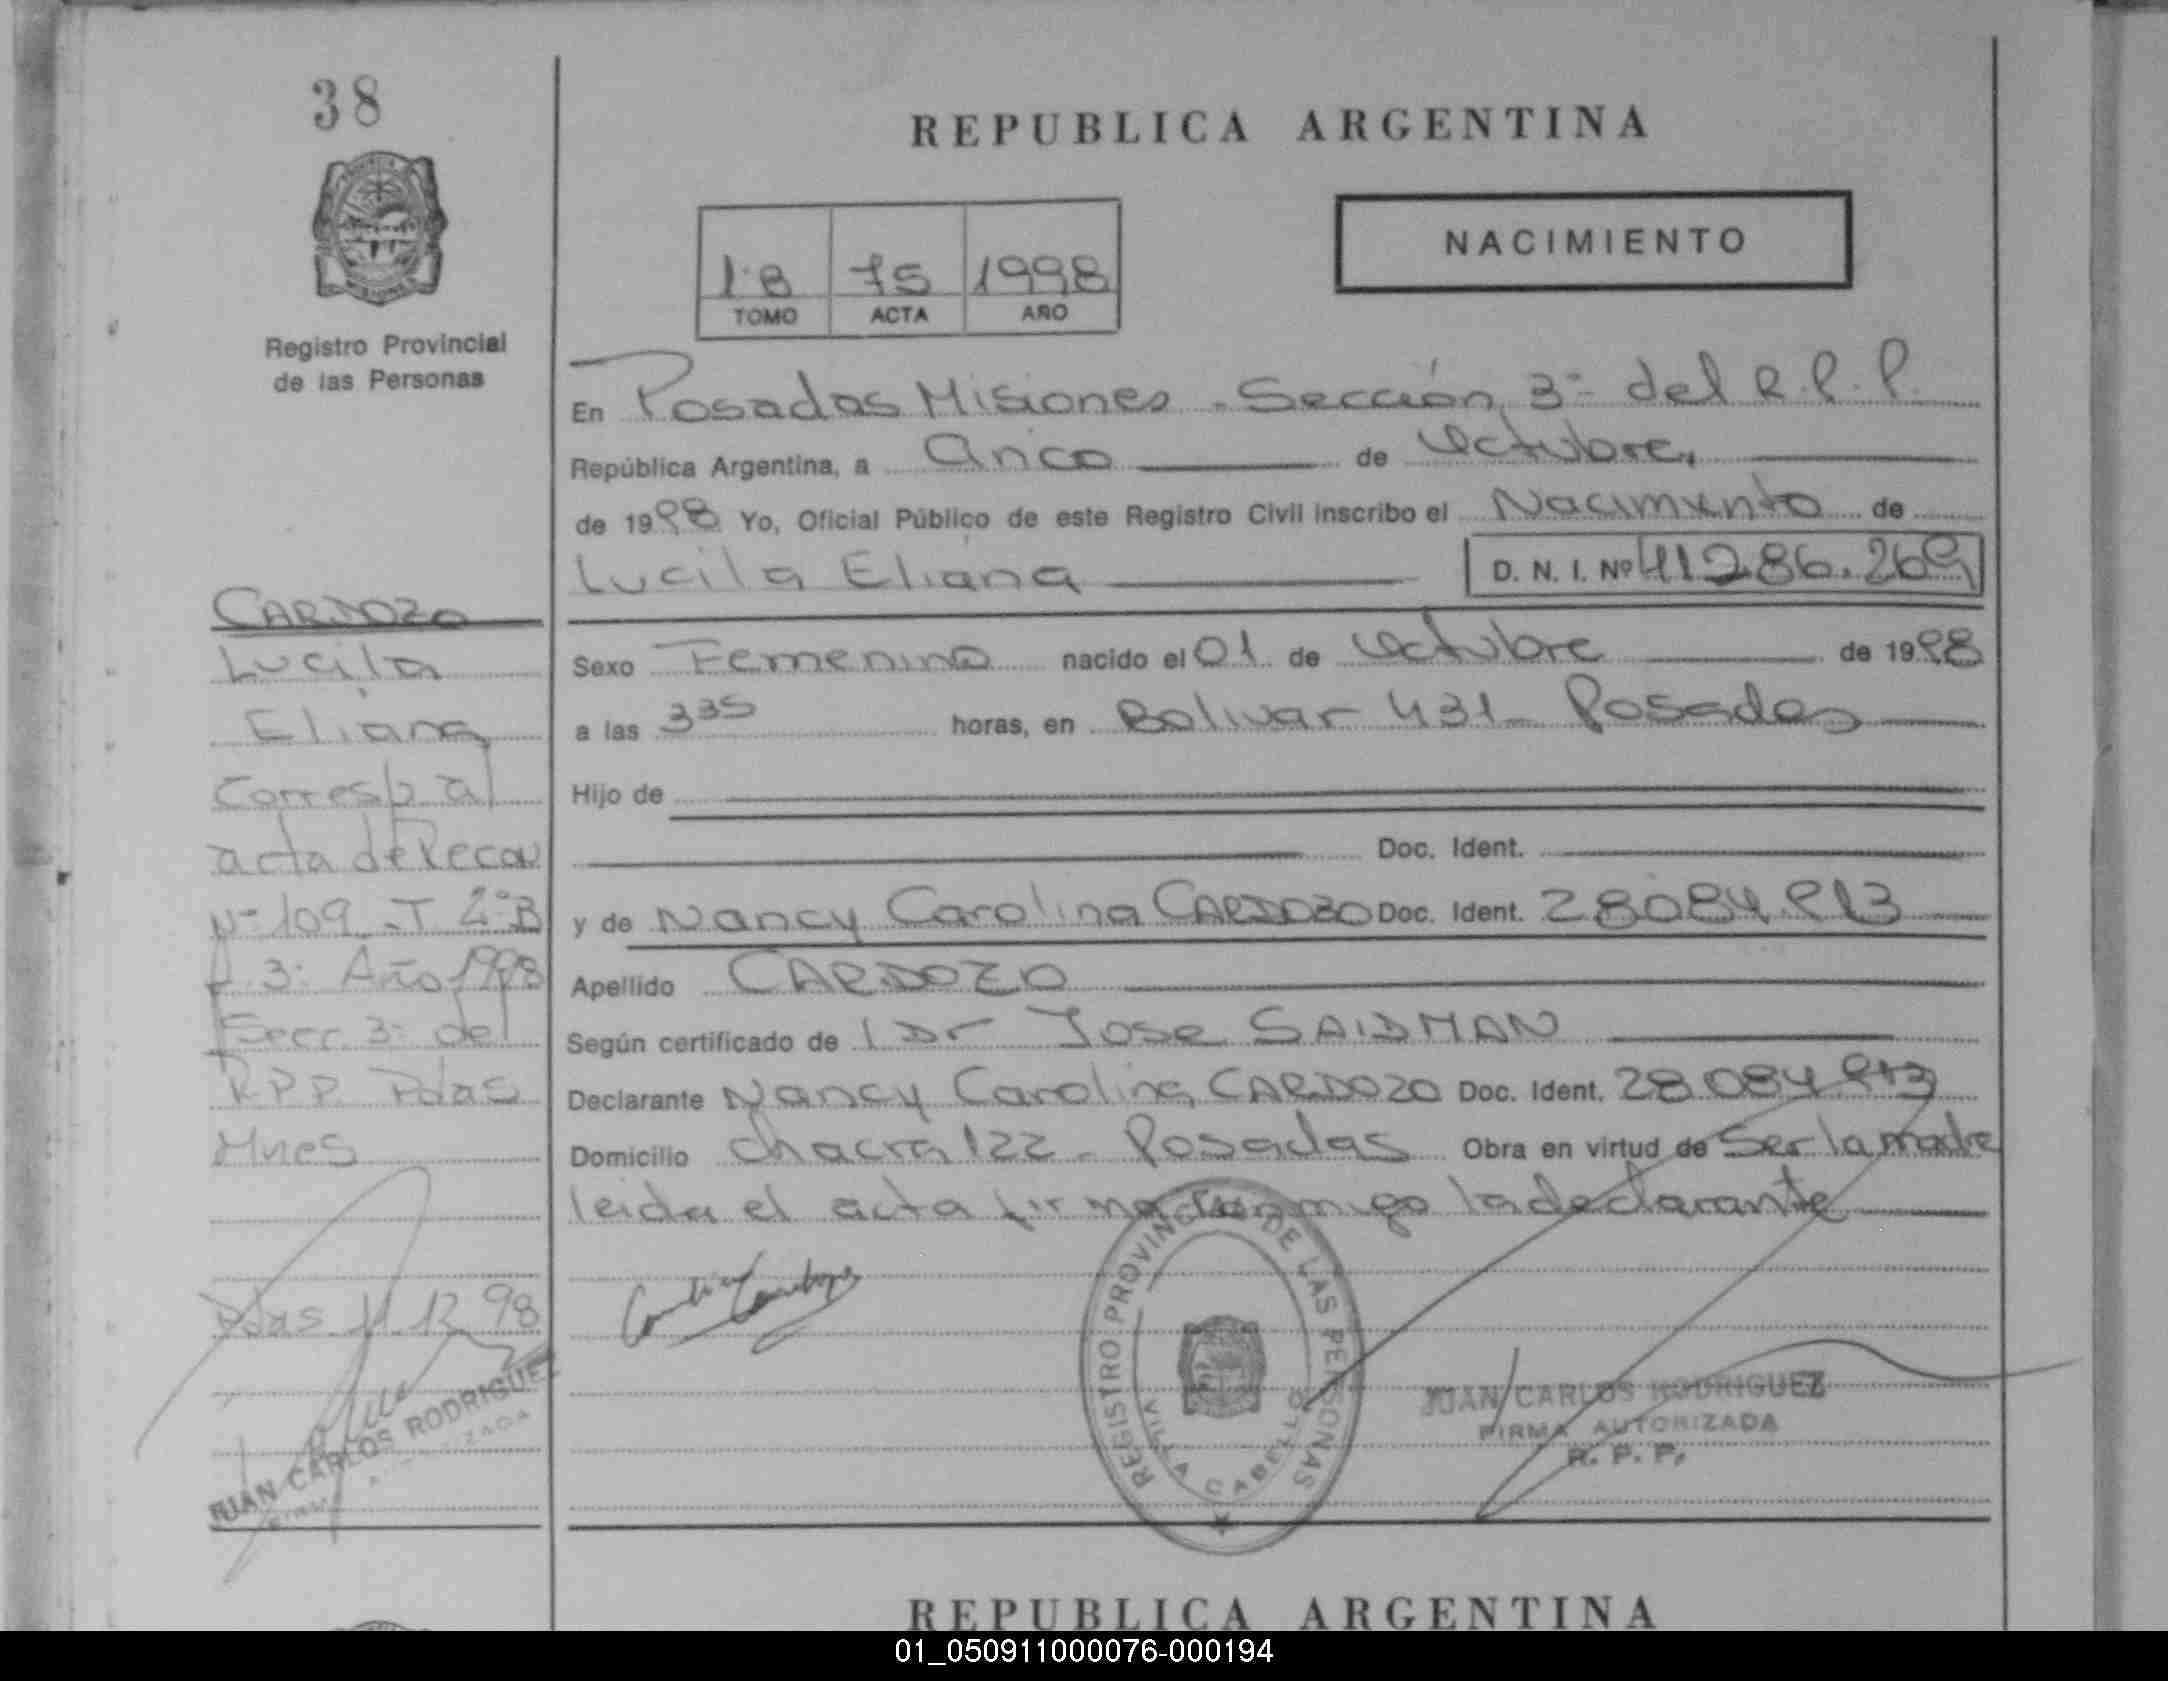 38
Registro Provincial
de las Personas
CARDOZO
Lucila
Eliana
Corresp al
acta de Recon
Nº 109 - T 2º B
f. 3: Año 1998
Secc. 3: del
R.P.P. Pdas
Mnes
Pdas 11 12 98
JUAN CARLOS RODRIGUEZ
REPUBLICA ARGENTINA
NACIMIENTO
1º B 75 1998
TOMO ACTA AÑO
En Posadas Misiones - Sección 3ª del R.P.P.
República Argentina, a cinco de Octubre,
de 1998 Yo, Oficial Público de este Registro Civil inscribo el Nacimiento de
Lucila Eliana D. N. I. Nº 41286.269
Sexo Femenino nacido el 01 de Octubre de 1998
a las 3 35 horas, en Bolivar 431 - Posadas
Hijo de
Doc. Ident.
y de Nancy Carolina CARDOZO Doc. Ident. 28084.913
Apellido CARDOZO
Según certificado de l Dr Jose SAIDMAN
Declarante Nancy Carolina CARDOZO Doc. Ident. 28.084.913
Domicilio chacra 122 - Posadas Obra en virtud de Ser la madre
leida el acta firma conmigo la declarante
REGISTRO PROVINCIAL DE LAS PERSONAS
VILLA CABELLO
JUAN CARLOS RODRIGUEZ
FIRMA AUTORIZADA
R. P. P.
REPUBLICA ARGENTINA
01_050911000076-000194